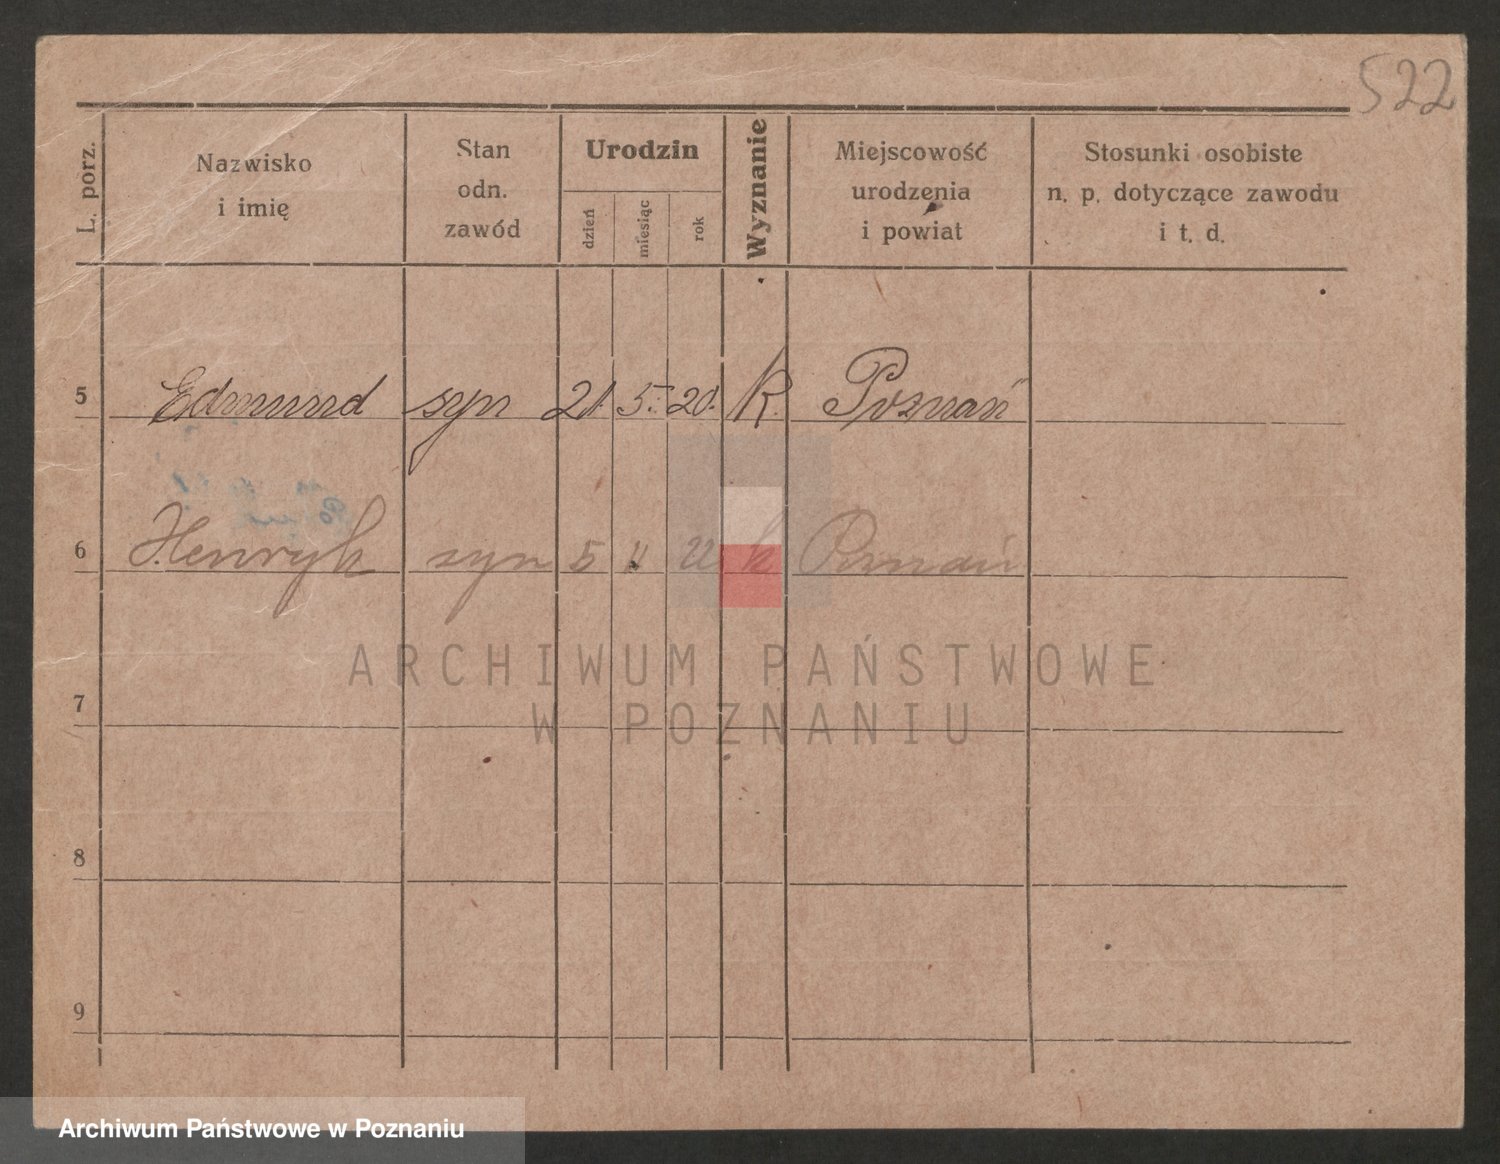 522
L. porz.
Nazwisko
i imię
Stan
odn.
zawód
Urodzin
dzień
miesiąc
rok
Wyznanie
Miejscowość
urodzenia
i powiat
Stosunki osobiste
n. p. dotyczące zawodu
i t. d.
5 Edmund syn 21. 5. 20. K. Poznań
6 Henryk syn 5 11 22 k Poznań
ARCHIWUM PAŃSTWOWE
W POZNANIU
7
8
9
Archiwum Państwowe w Poznaniu